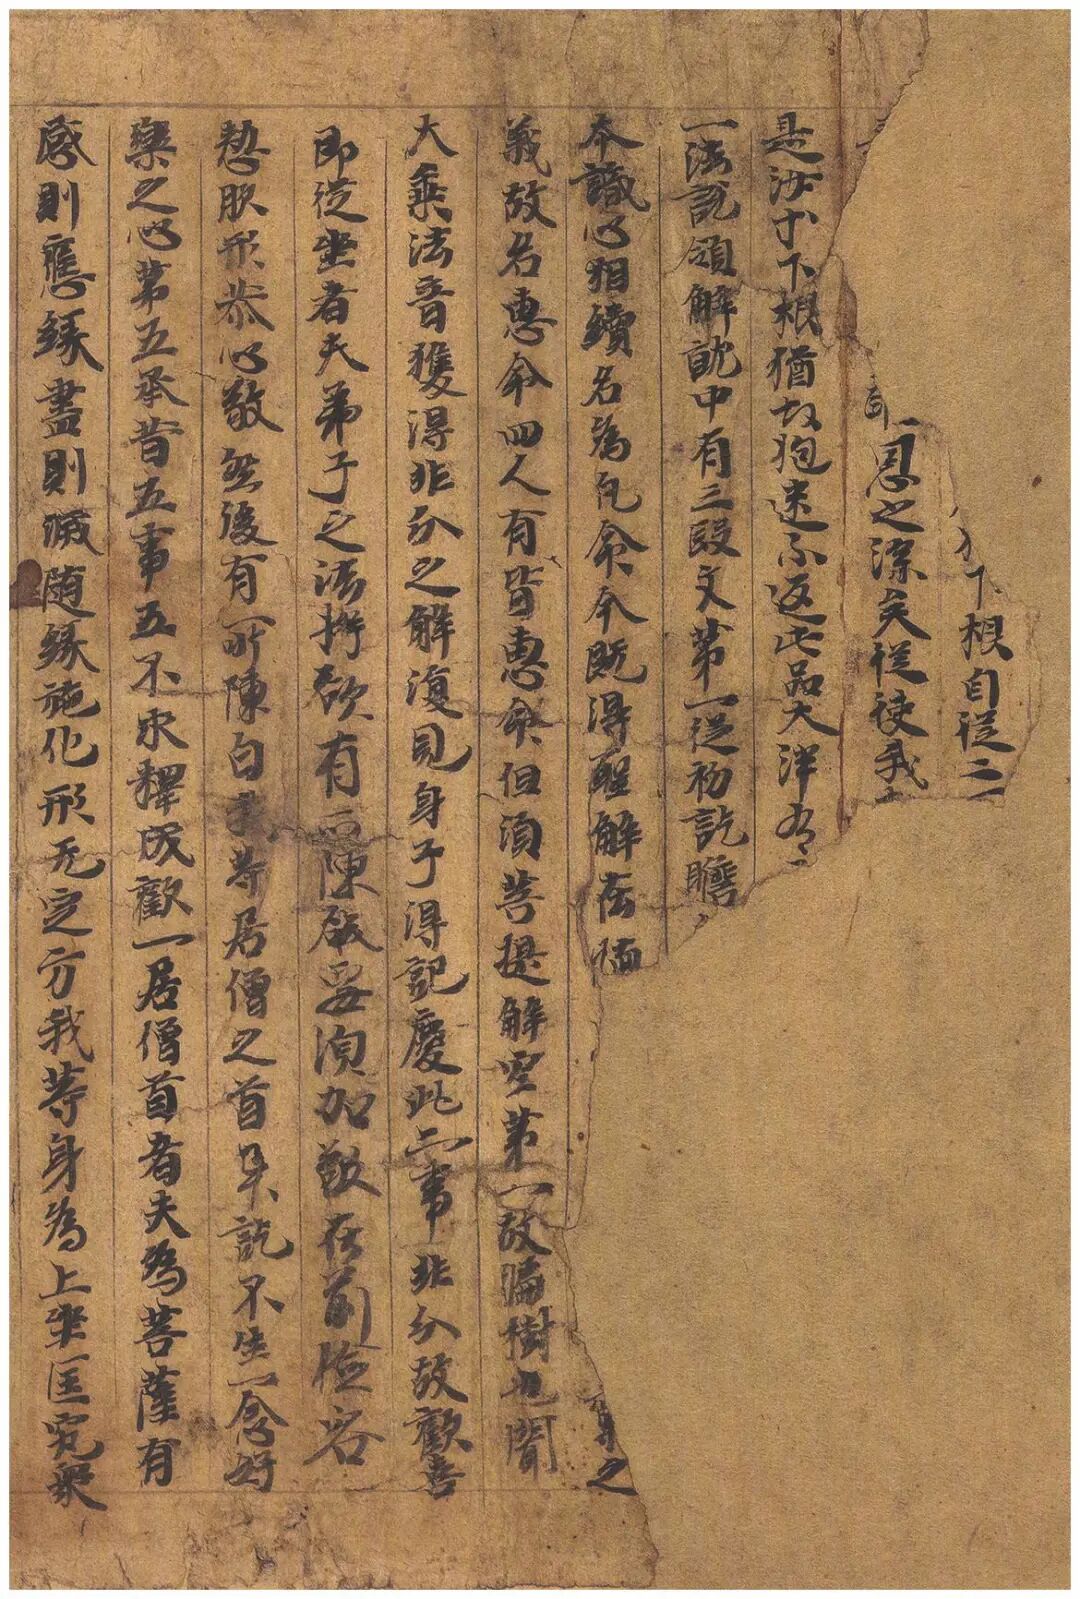 下根自從二
恩之深矣從使我
是沙中下根猶故抱迷不返此品大
一法說領解就中有三段文第一從初訖瞻
本識心相續名為凡命今既得聖解在
義故名惠命四人有皆惠命但須菩提解空第一故瞞樹也聞
之
大乘法音獲得非分之解復見身子得記慶此二事非分故歡喜
即從坐者夫弟子之法將欲有所陳啟要須加敬在前斂容
慭服形恭心敬然後有所陳白我等居僧之首年訖不生一念好
樂之心第五承昔五事五不求釋成歡一居僧首者夫為菩薩有
感則應緣盡則滅随緣施化形无定方我等身為上坐匡究衆